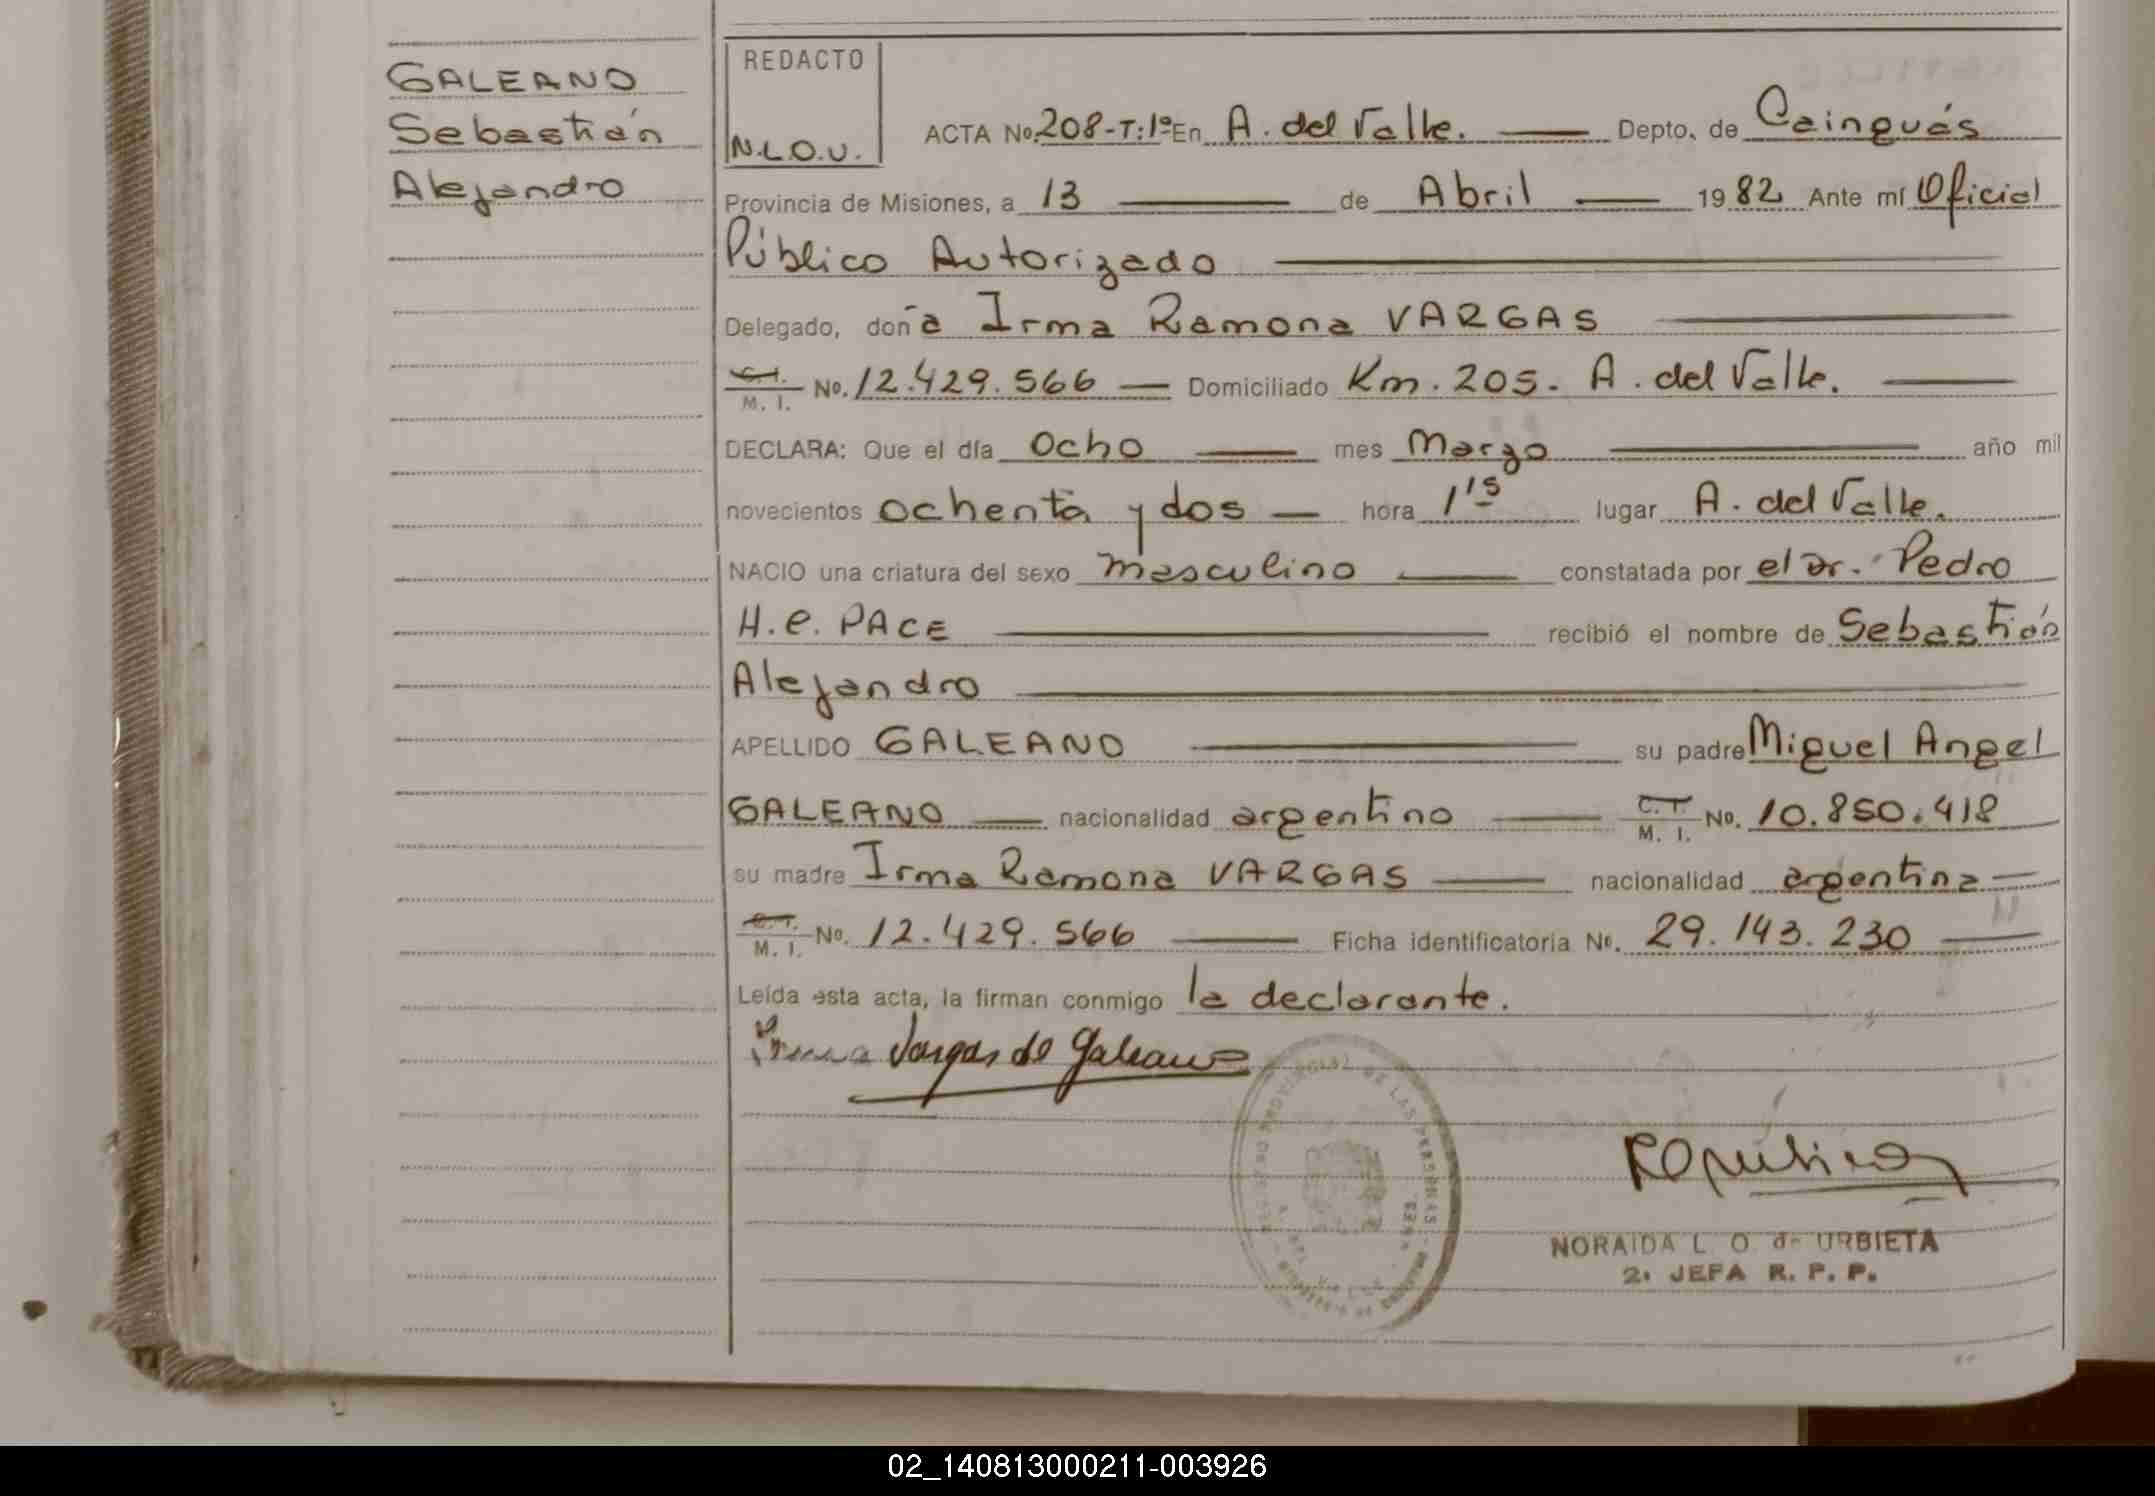 GALEANO
Sebastián
Alejandro
REDACTO
N.L.O.U.
ACTA No. 208-T:1º En A. del Valle. Depto. de Cainguás
Provincia de Misiones, a 13 de Abril 1982 Ante mí Oficial
Público Autorizado
Delegado, doña Irma Ramona VARGAS
C.I. M. I. No. 12.429.566 Domiciliado Km. 205. A. del Valle.
DECLARA: Que el día ocho mes Marzo año mil
novecientos ochenta y dos hora 1'15 lugar A. del Valle.
NACIO una criatura del sexo masculino constatada por el Dr. Pedro
H.C. PACE recibió el nombre de Sebastián
Alejandro
APELLIDO GALEANO su padre Miguel Angel
GALEANO nacionalidad argentino C.I. M. I. No. 10.850.418
su madre Irma Ramona VARGAS nacionalidad argentina
C.I. M. I. No. 12.429.566 Ficha identificatoria No. 29.143.230
Leída esta acta, la firman conmigo la declarante.
Irma Vargas de Galeano
PROVINCIAL DE LAS PERSONAS
NORAIDA L. O. de URBIETA
2ª JEFA R. P. P.
02_140813000211-003926